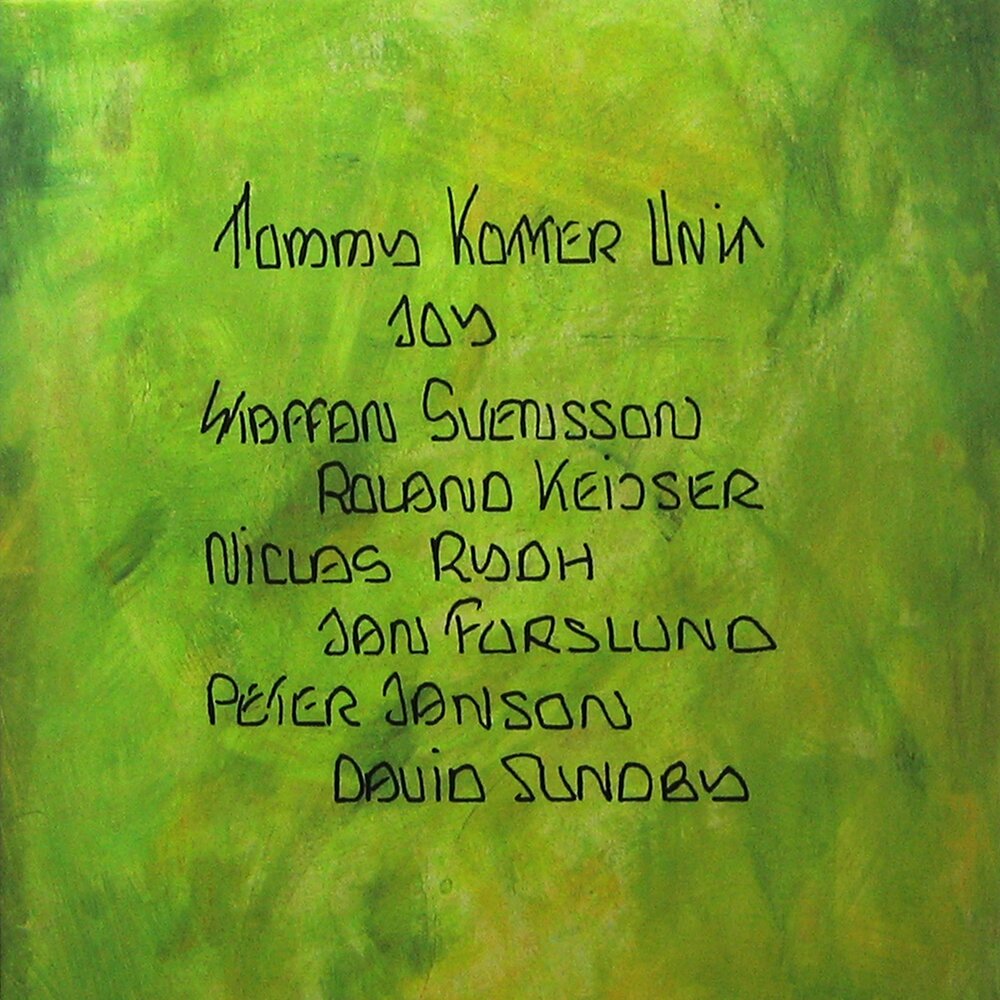 Tommy KOTTER UNIT
JOY
STAFFAN SVENSSON
ROLAND KEIJSER
NICLAS RYDH
JAN FORSLUND
PETER JANSON
DAVID SUNDBY